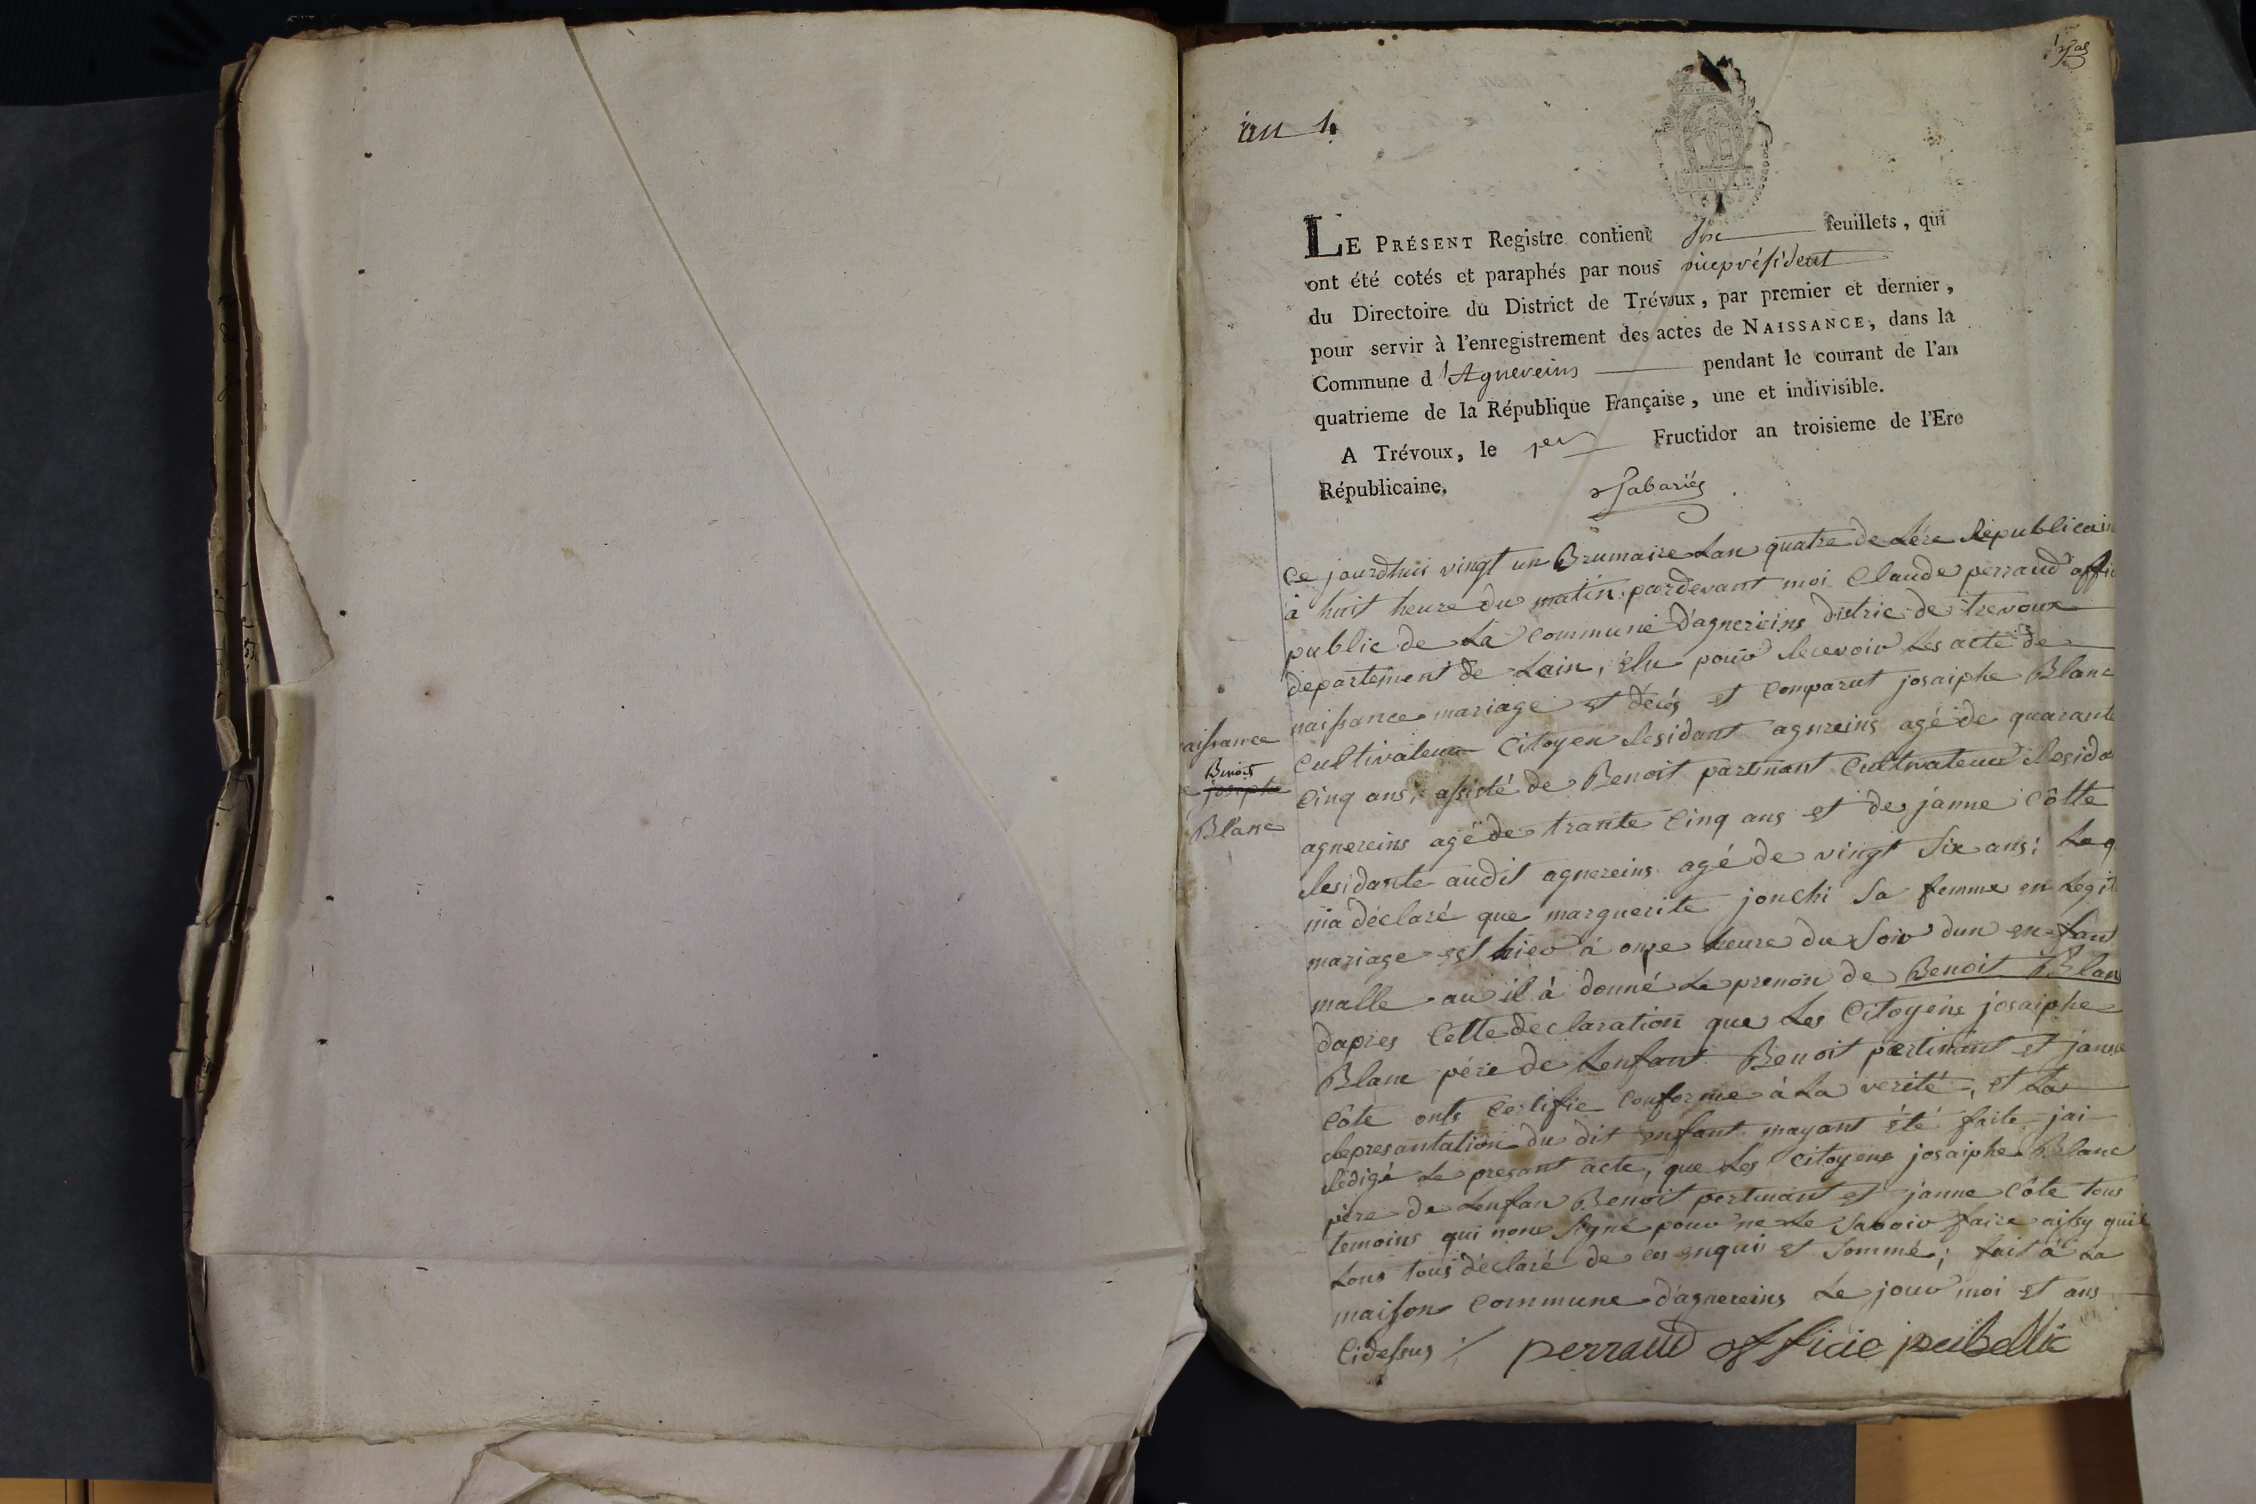 an 4
LE PRÉSENT Registre contient six feuillets, qui
ont été cotés et paraphés par nous viceprésident
du Directoire du District de Trévoux, par premier et dernier,
pour servir à l'enregistrement des actes de NAISSANCE, dans la
Commune d'Agnereins pendant le courant de l'an
quatrieme de la République Française, une et indivisible.
A Trévoux, le 1er Fructidor an troisieme de l'Ere
Républicaine.
Ce jourdhui vingt un Brumaire Lan quatre de Lére Republicain
à huit heure du matin pardevant moi Claude perraud offi
public de La Commune d'agnereins distric de trevoux
departement de Lain, élu pour Recevoir Les acte de
naissance mariage et décés et Comparut josaiphe Blanc
Cultivateur Citoyen Residant agnreins agé de quarante
Cinq ans, assisté de Benoit partinant Cultivateur Resida
agnereins agé de trante Cinq ans et de janne Côtte
Residante audit agnereins agé de vingt Six ans; Leq
ma déclaré que marguerite jonchi Sa femme en Legit
mariage est hier à onze heure du Soir dun enfant
malle au il à donné Le prenon de Benoit Blan
dapres Cette declaration que Les Citoyens josaiphe
Blanc pére de Lenfant Benoit partinant et janne
Côte onts Certifie Conforme à La verité, et La
Represantation du dit enfant mayant été faite jai
Rédigé Le presant acte, que Les Citoyens josaiphe Blanc
père de Lenfan Benoit pertinant et janne Côte tous
temoins qui nont Signé pour ne Le Savoir faire aissy quil
Lons tous déclaré de ces enquis et Sommé; fait à La
maison Commune dagnereins Le jour moi et ans
Cidessus perraud officie peubellic
aissance
Benoit
e josephe
Blanc